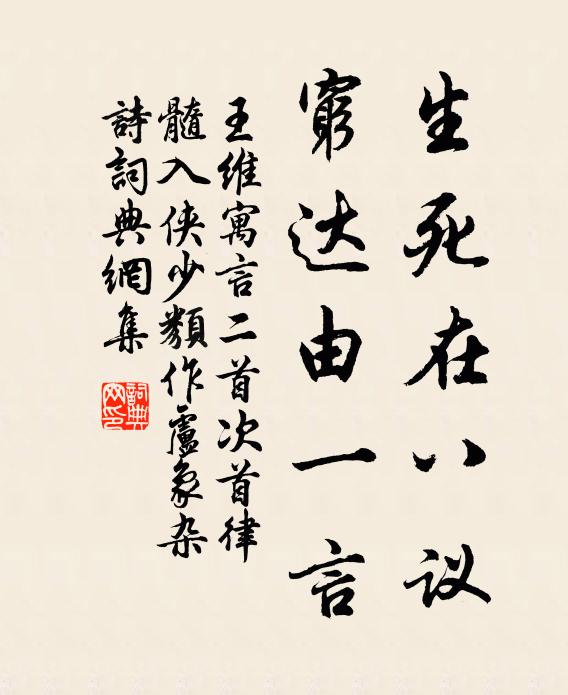 生死在八议
窮达由一言
王維寓言二首次首律
髓入侠少類作盧象杂
詩詞典網集
詞典网印